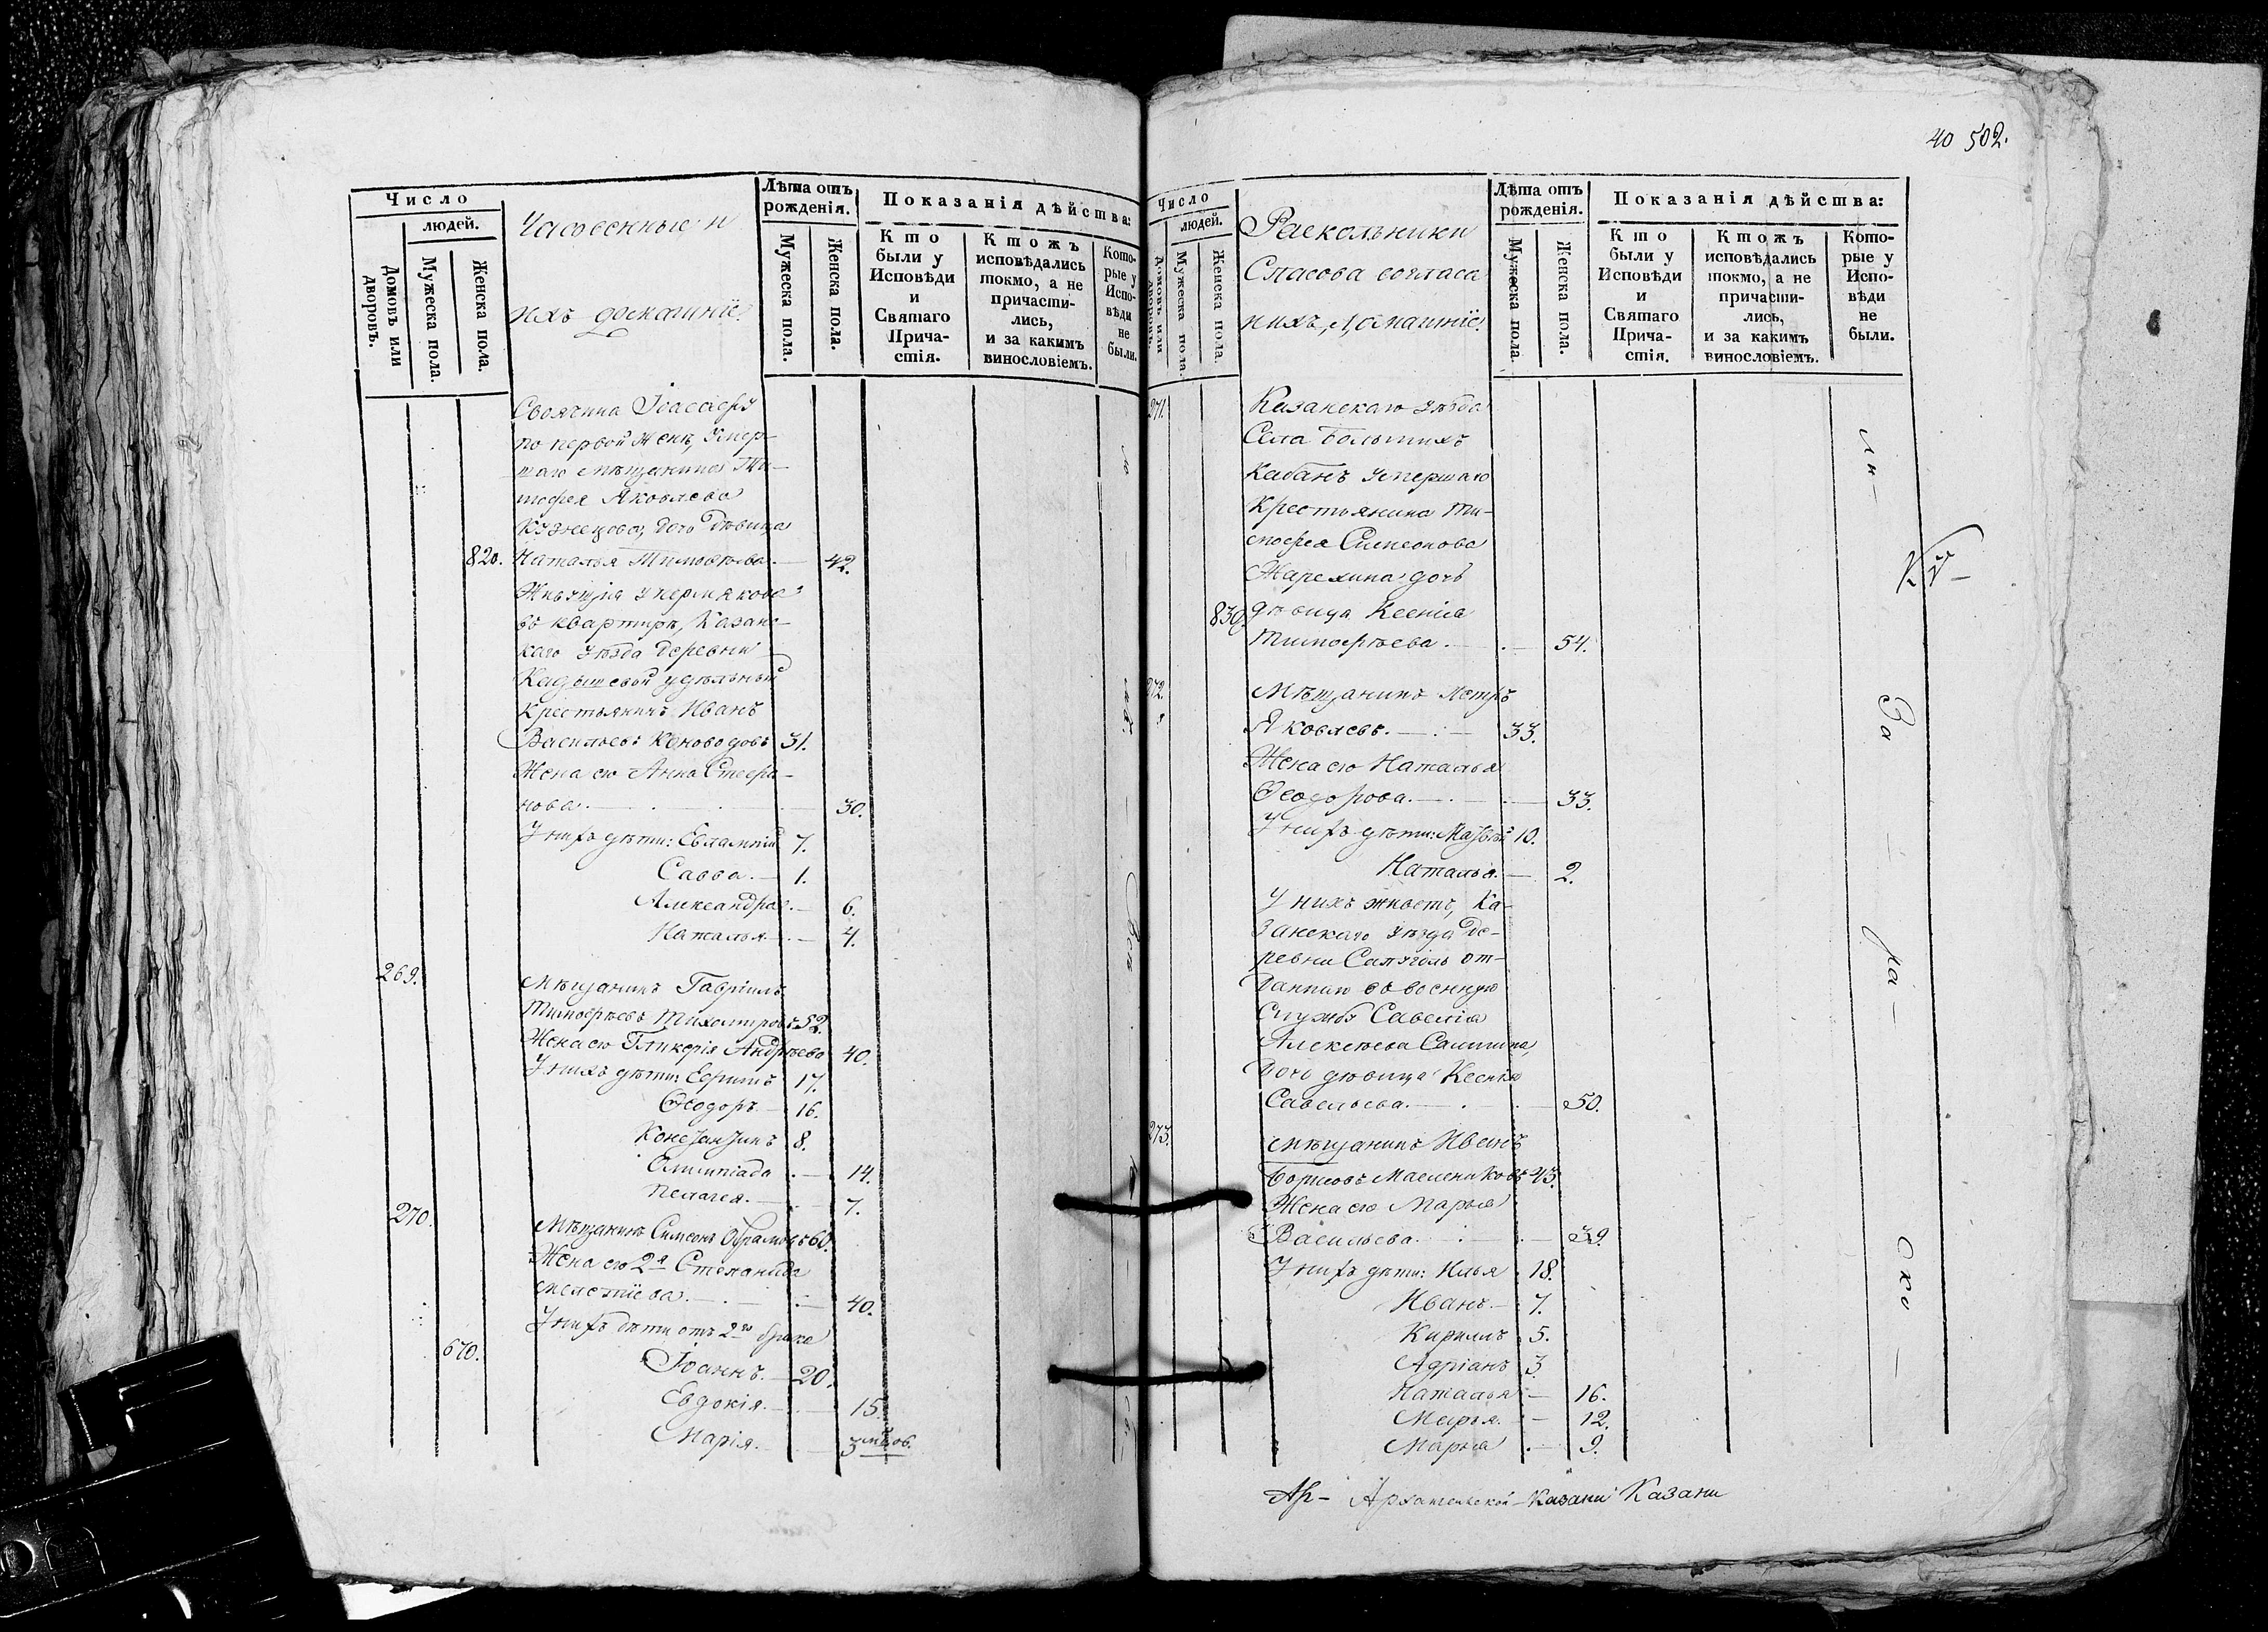 Число
людей.
Домовъ или дворовъ.
Мужеска пола.
Женска пола.
Часовенные и
ихъ домашнiе.
Лѣта отъ
рожденія.
Мужеска пола.
Женска пола.
Показанія дѣйства:
Кто
были у
Исповѣди
и
Святаго
Прича-
стія.
Ктожъ
исповѣдались
токмо, а не
причасти-
лись,
и за какимъ
винословіемъ.
Кото-
рые у
Испо-
вѣди
не
были.
Своячина
по первой женѣ, умер-
шаго мѣщанина Ти-
мофея Яковлева
Кузнецова, дочь дѣвица
820. Наталья Тимофѣева. — 42.
Живущiя у Пермякова
въ квартирѣ, Казанс-
каго уѣзда деревни
Кадышевой удѣльный
крестьянинъ Иванъ
Васильевъ Коноводовъ 31.
Жена его Анна Стефа-
нова. — 30.
У нихъ дѣти: Евлампiй 7.
Савва. — 1.
Александра. — 6.
Наталья. — 4.
269. Мѣщанинъ Гаврiилъ
Тимофѣевъ Тихомировъ 52.
Жена его Гликерiя Андрѣева 40.
У нихъ дѣти: Ефимъ 17.
Ѳеодоръ. — 16.
Константинъ 8.
Олимпiада — 14.
Пелагея. — 7.
270. Мѣщанинъ Симеонъ 60.
Жена его 2я Степанида
— 40.
У нихъ дѣти отъ 2го брака
670. Iоаннъ. — 20.
Евдокiя. — 15.
Марiя. — 3
40 502.
Число
людей.
Домовъ или дворовъ.
Мужеска пола.
Женска пола.
Раскольники
Спасова согласа
и ихъ домашнiе.
Лѣта отъ
рожденія.
Мужеска пола.
Женска пола.
Показанія дѣйства:
Кто
были у
Исповѣди
и
Святаго
Прича-
стія.
Ктожъ
исповѣдались
токмо, а не
причасти-
лись,
и за какимъ
винословіемъ.
Кото-
рые у
Испо-
вѣди
не
были.
271. Казанскаго уѣзда
Села Большихъ
Кабанъ умершаго
крестьянина Ти-
мофея Симеонова
дочь
830. дѣвица Ксенiя
Тимофѣева. — 54.
272. Мѣщанинъ Петръ
Яковлевъ. — 33.
Жена его Наталья
Ѳеодорова. — 33.
У нихъ дѣти: Матвѣй 10.
Наталья. — 2.
У нихъ живетъ, Ка-
занскаго уѣзда де-
ревни от-
даннаго въ военную
службу Савелiя
Алексѣева
дочь дѣвица Ксенiя
Савельева. — 50.
273. Мѣщанинъ Иванъ
Борисовъ Маслениковъ 43.
Жена его Марья
Васильева. — 39.
У нихъ дѣти: Илья 18.
Иванъ. — 7.
Кирилъ 5.
Адрiанъ 3.
Наталья — 16.
— 12.
Марья — 9.
Архангельской Казани Казани